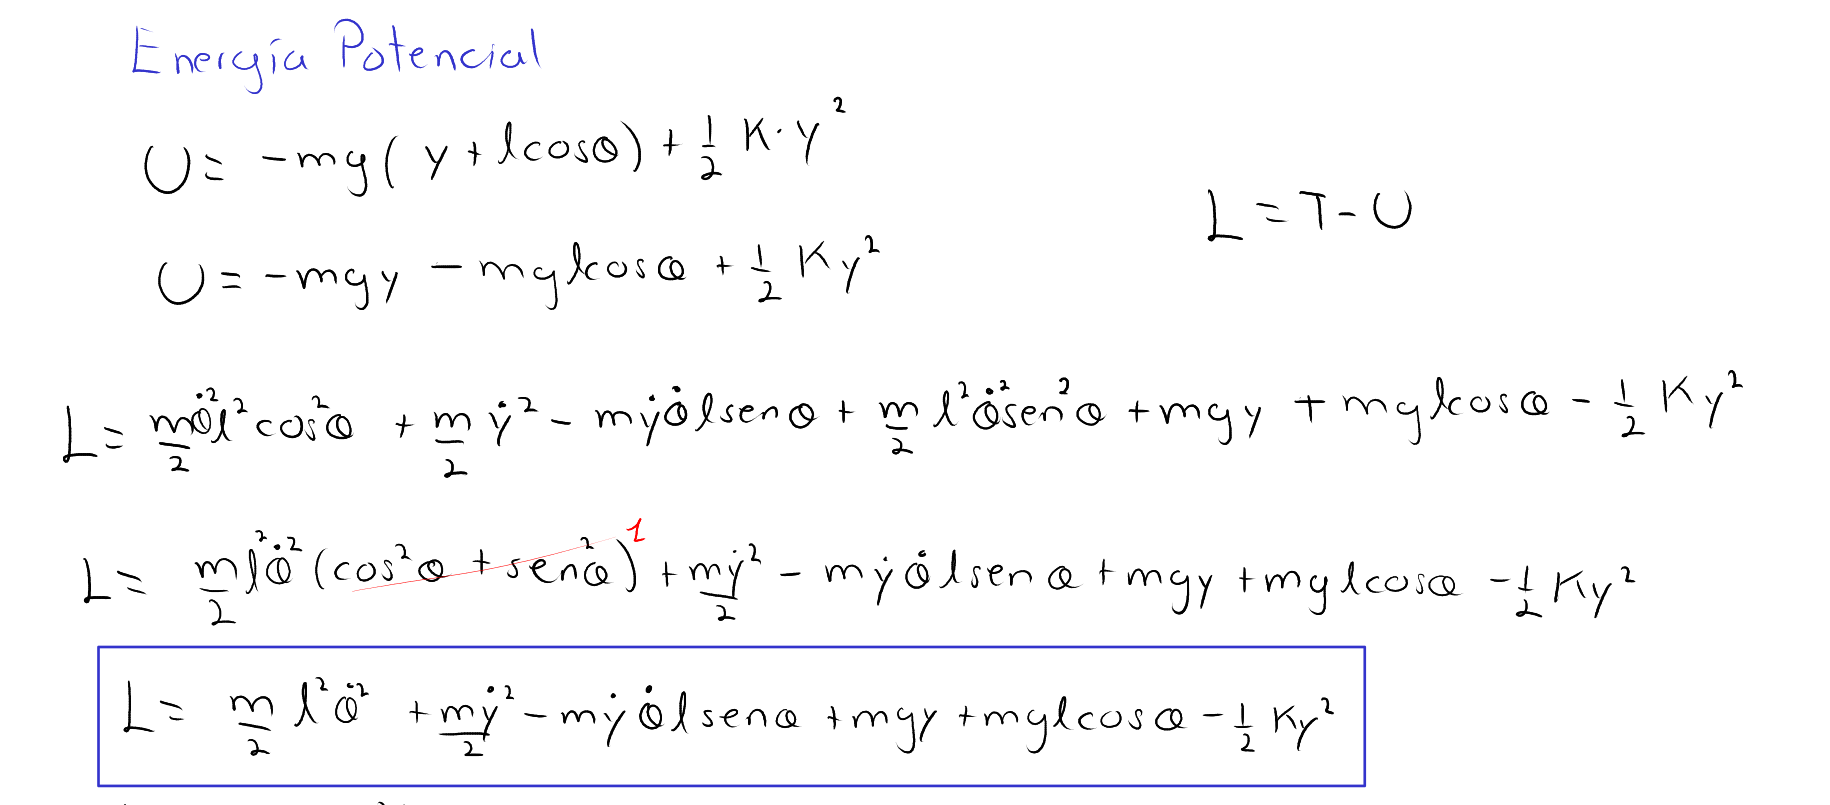 Energía Potencial
U = -mg( y + lcosθ) + 1/2 K·y²
L = T - U
U = -mgy - mglcosθ + 1/2 Ky²
L = m/2 θ̇² l² cos²θ + m/2 ẏ² - mẏθ̇lsenθ + m/2 l²θ̇²sen²θ + mgy + mglcosθ - 1/2 Ky²
L = m/2 l²θ̇² (cos²θ + sen²θ)¹ + mẏ²/2 - mẏθ̇lsenθ + mgy + mglcosθ - 1/2 Ky²
L = m/2 l²θ̇² + mẏ²/2 - mẏθ̇lsenθ + mgy + mglcosθ - 1/2 Ky²